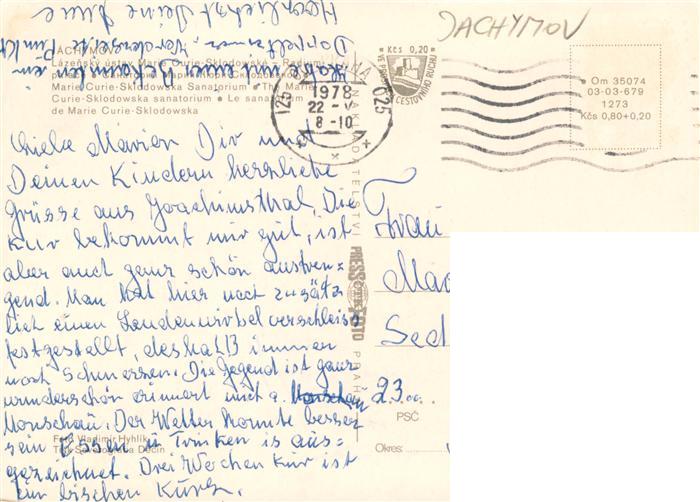 JACHYMOV
JÁCHYMOV
Lázeňský ústav Marie Curie-Sklodowské • Radium
Marie Curie-Sklodowska Sanatorium • The Marie
Curie-Sklodowska sanatorium • Le sanatorium
de Marie Curie-Sklodowska
Kčs 0,20
1978
22.-V.
8-10
025
025
CESTOVNÍHO RUCHU
Om 35074
03-03-679
1273
Kčs 0,80+0,20
Liebe Marion Dir und
Deinen Kindern herzliche
Grüsse aus Joachimsthal. Die
Kur bekommt mir gut, ist
aber auch ganz schön anstren=
gend. Man hat hier noch zusätz
lich einen Lendenwirbelverschleiss
festgestellt, deshalb immer
noch Schmerzen. Die Gegend ist ganz
wunderschön erinnert mich a. Monschau
Monschau. Der Wetter könnte besser
sein Essen u Trinken is aus=
gezeichnet. Drei Wochen Kur ist
ein bischen Kurz.
Doppelzimmer,
Herzlichst Deine
NAKLADATELSTVÍ
PRESSFOTO
PRAHA
Foto Vladimír Hyhlík
Děčín
Frau
Sed
23.00
PSČ
Okres: